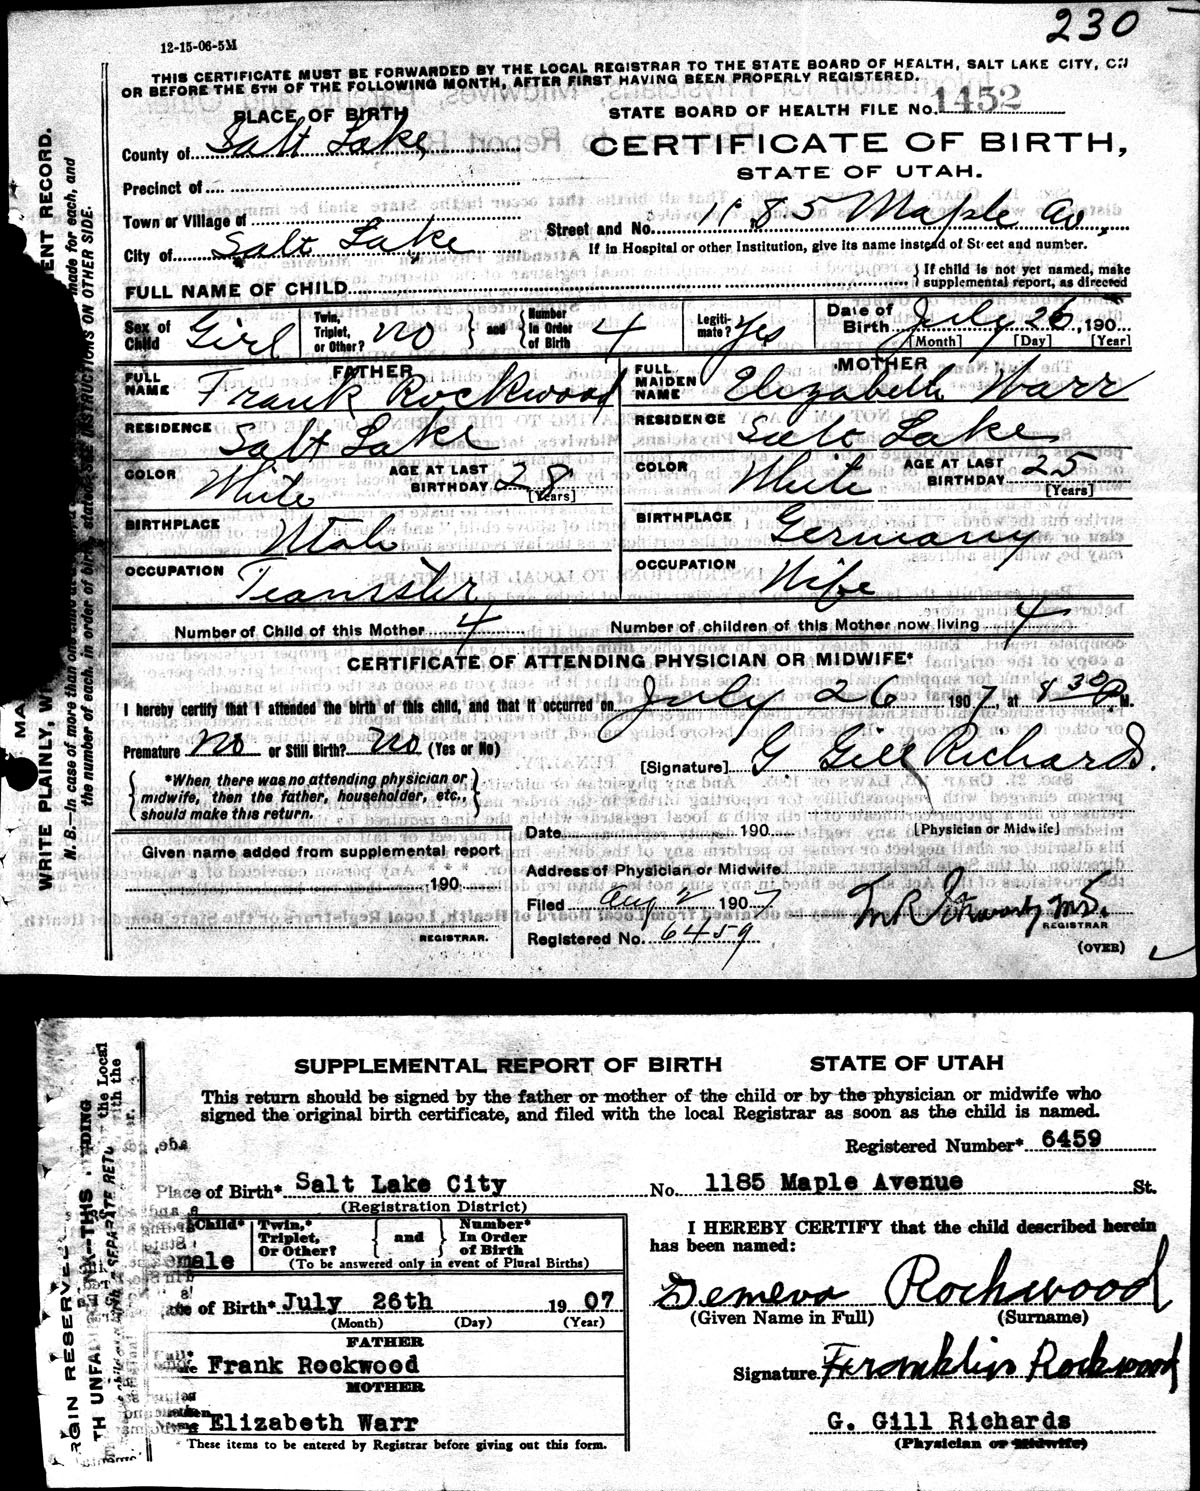 230
12-15-06-5M
THIS CERTIFICATE MUST BE FORWARDED BY THE LOCAL REGISTRAR TO THE STATE BOARD OF HEALTH, SALT LAKE CITY, ON
OR BEFORE THE 5TH OF THE FOLLOWING MONTH, AFTER FIRST HAVING BEEN PROPERLY REGISTERED.
STATE BOARD OF HEALTH FILE No. 1452
PLACE OF BIRTH
County of Salt Lake
CERTIFICATE OF BIRTH,
STATE OF UTAH.
Precinct of
Town or Village of
Street and No. 1185 Maple Av.
City of Salt Lake
If in Hospital or other Institution, give its name instead of Street and number.
FULL NAME OF CHILD
If child is not yet named, make
supplemental report, as directed
Sex of Child Girl
Twin, Triplet, or Other? no
and
Number in Order of Birth 4
Legitimate? Yes
Date of Birth July 26, 190
[Month] [Day] [Year]
FATHER
FULL NAME Frank Rockwood
RESIDENCE Salt Lake
COLOR White
AGE AT LAST BIRTHDAY 28
[Years]
BIRTHPLACE Utah
OCCUPATION Teamster
MOTHER
FULL MAIDEN NAME Elizabeth Warr
RESIDENCE Salt Lake
COLOR White
AGE AT LAST BIRTHDAY 25
[Years]
BIRTHPLACE Germany
OCCUPATION Wife
Number of Child of this Mother 4
Number of children of this Mother now living 4
CERTIFICATE OF ATTENDING PHYSICIAN OR MIDWIFE*
I hereby certify that I attended the birth of this child, and that it occurred on July 26 1907, at 8 30 P M.
Premature no or Still Birth? no (Yes or No)
[Signature] G Gill Richards.
*When there was no attending physician or
midwife, then the father, householder, etc.,
should make this return.
Date 190
[Physician or Midwife]
Given name added from supplemental report
190
REGISTRAR.
Address of Physician or Midwife
Filed Aug 2 1907
REGISTRAR
Registered No. 6459
(OVER)
WRITE PLAINLY, W
N. B.—In case of more than one child
the number of each, in order of birth, stated. SEE INSTRUCTIONS ON OTHER SIDE.
SUPPLEMENTAL REPORT OF BIRTH STATE OF UTAH
This return should be signed by the father or mother of the child or by the physician or midwife who
signed the original birth certificate, and filed with the local Registrar as soon as the child is named.
Registered Number* 6459
Place of Birth* Salt Lake City No. 1185 Maple Avenue St.
(Registration District)
Child* male
Twin,* Triplet, Or Other?
and
Number* In Order of Birth
(To be answered only in event of Plural Births)
of Birth* July 26th 1907
(Month) (Day) (Year)
FATHER
Frank Rockwood
MOTHER
Elizabeth Warr
*These items to be entered by Registrar before giving out this form.
I HEREBY CERTIFY that the child described herein
has been named:
Rockwood
(Given Name in Full) (Surname)
Signature Franklin Rockwood
G. Gill Richards
(Physician or Midwife)